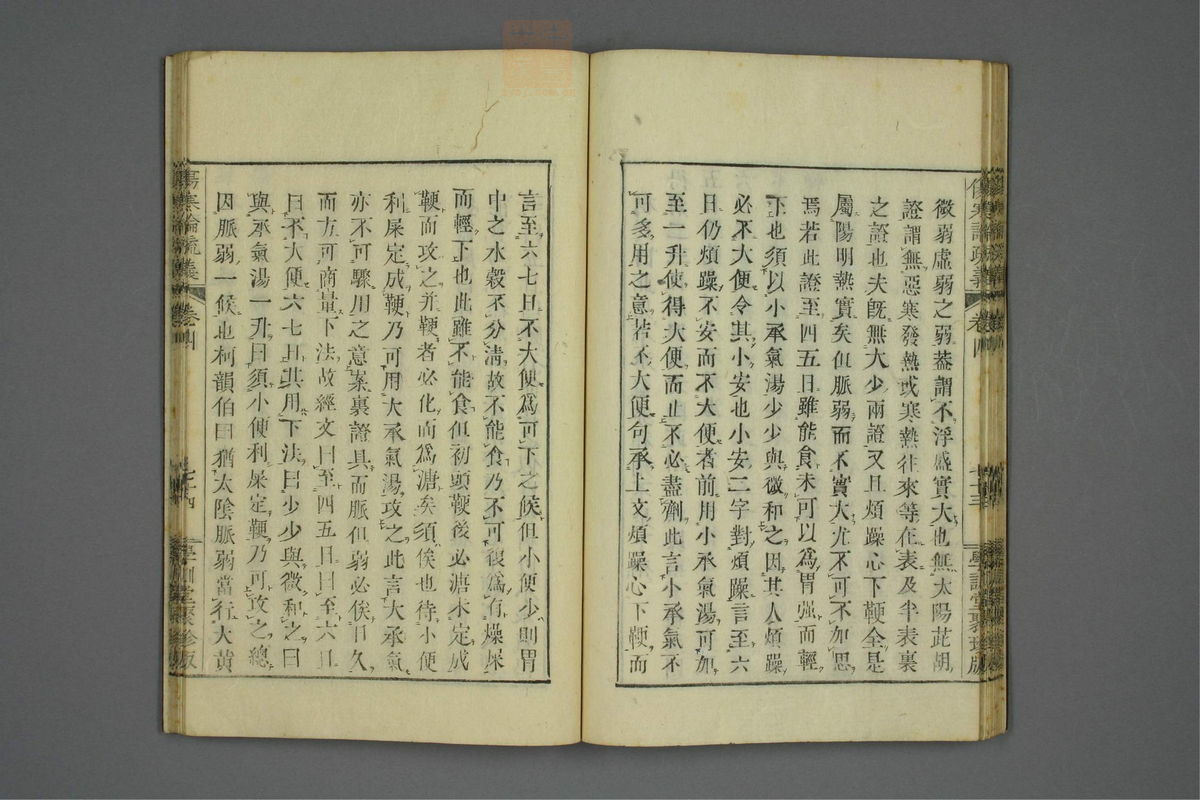 微弱虛弱之弱蓋謂不浮盛實大也無太陽茈胡
證謂無惡寒發熱或寒熱往來等在表及半表裏
之證也夫既無太少兩證又且煩躁心下鞕全是
屬陽明熱實矣但脈弱而不實大尤不可不加思
焉若此證至四五日雖能食未可以爲胃强而輕
下也須以小承氣湯少少與微和之因其人煩躁
必不大便令其小安也小安二字對煩躁言至六
日仍煩躁不安而不大便者前用小承氣湯可加
至一升使得大便而止不必盡劑此言小承氣不
可多用之意若不大便句承上文煩躁心下鞕而
傷寒論疏義
卷四
七十三
學訓堂聚珍版
言至六七日不大便爲可下之候但小便少則胃
中之水穀不分淸故不能食乃不可視爲有燥屎
而輕下也此雖不能食但初頭鞕後必溏未定成
鞕而攻之并鞕者必化而爲溏矣須俟也待小便
利屎定成鞕乃可用大承氣湯攻之此言大承氣
亦不可驟用之意案裏證具而脈但弱必俟日久
而方可商量下法故經文曰至四五日曰至六日
曰不大便六七日其用下法曰少少與微和之曰
與承氣湯一升曰須小便利屎定鞕乃可攻之總
因脈弱一候也柯韻伯曰猶太陰脈弱當行大黃
傷寒論疏義
卷四
七十四
學訓堂聚珍版